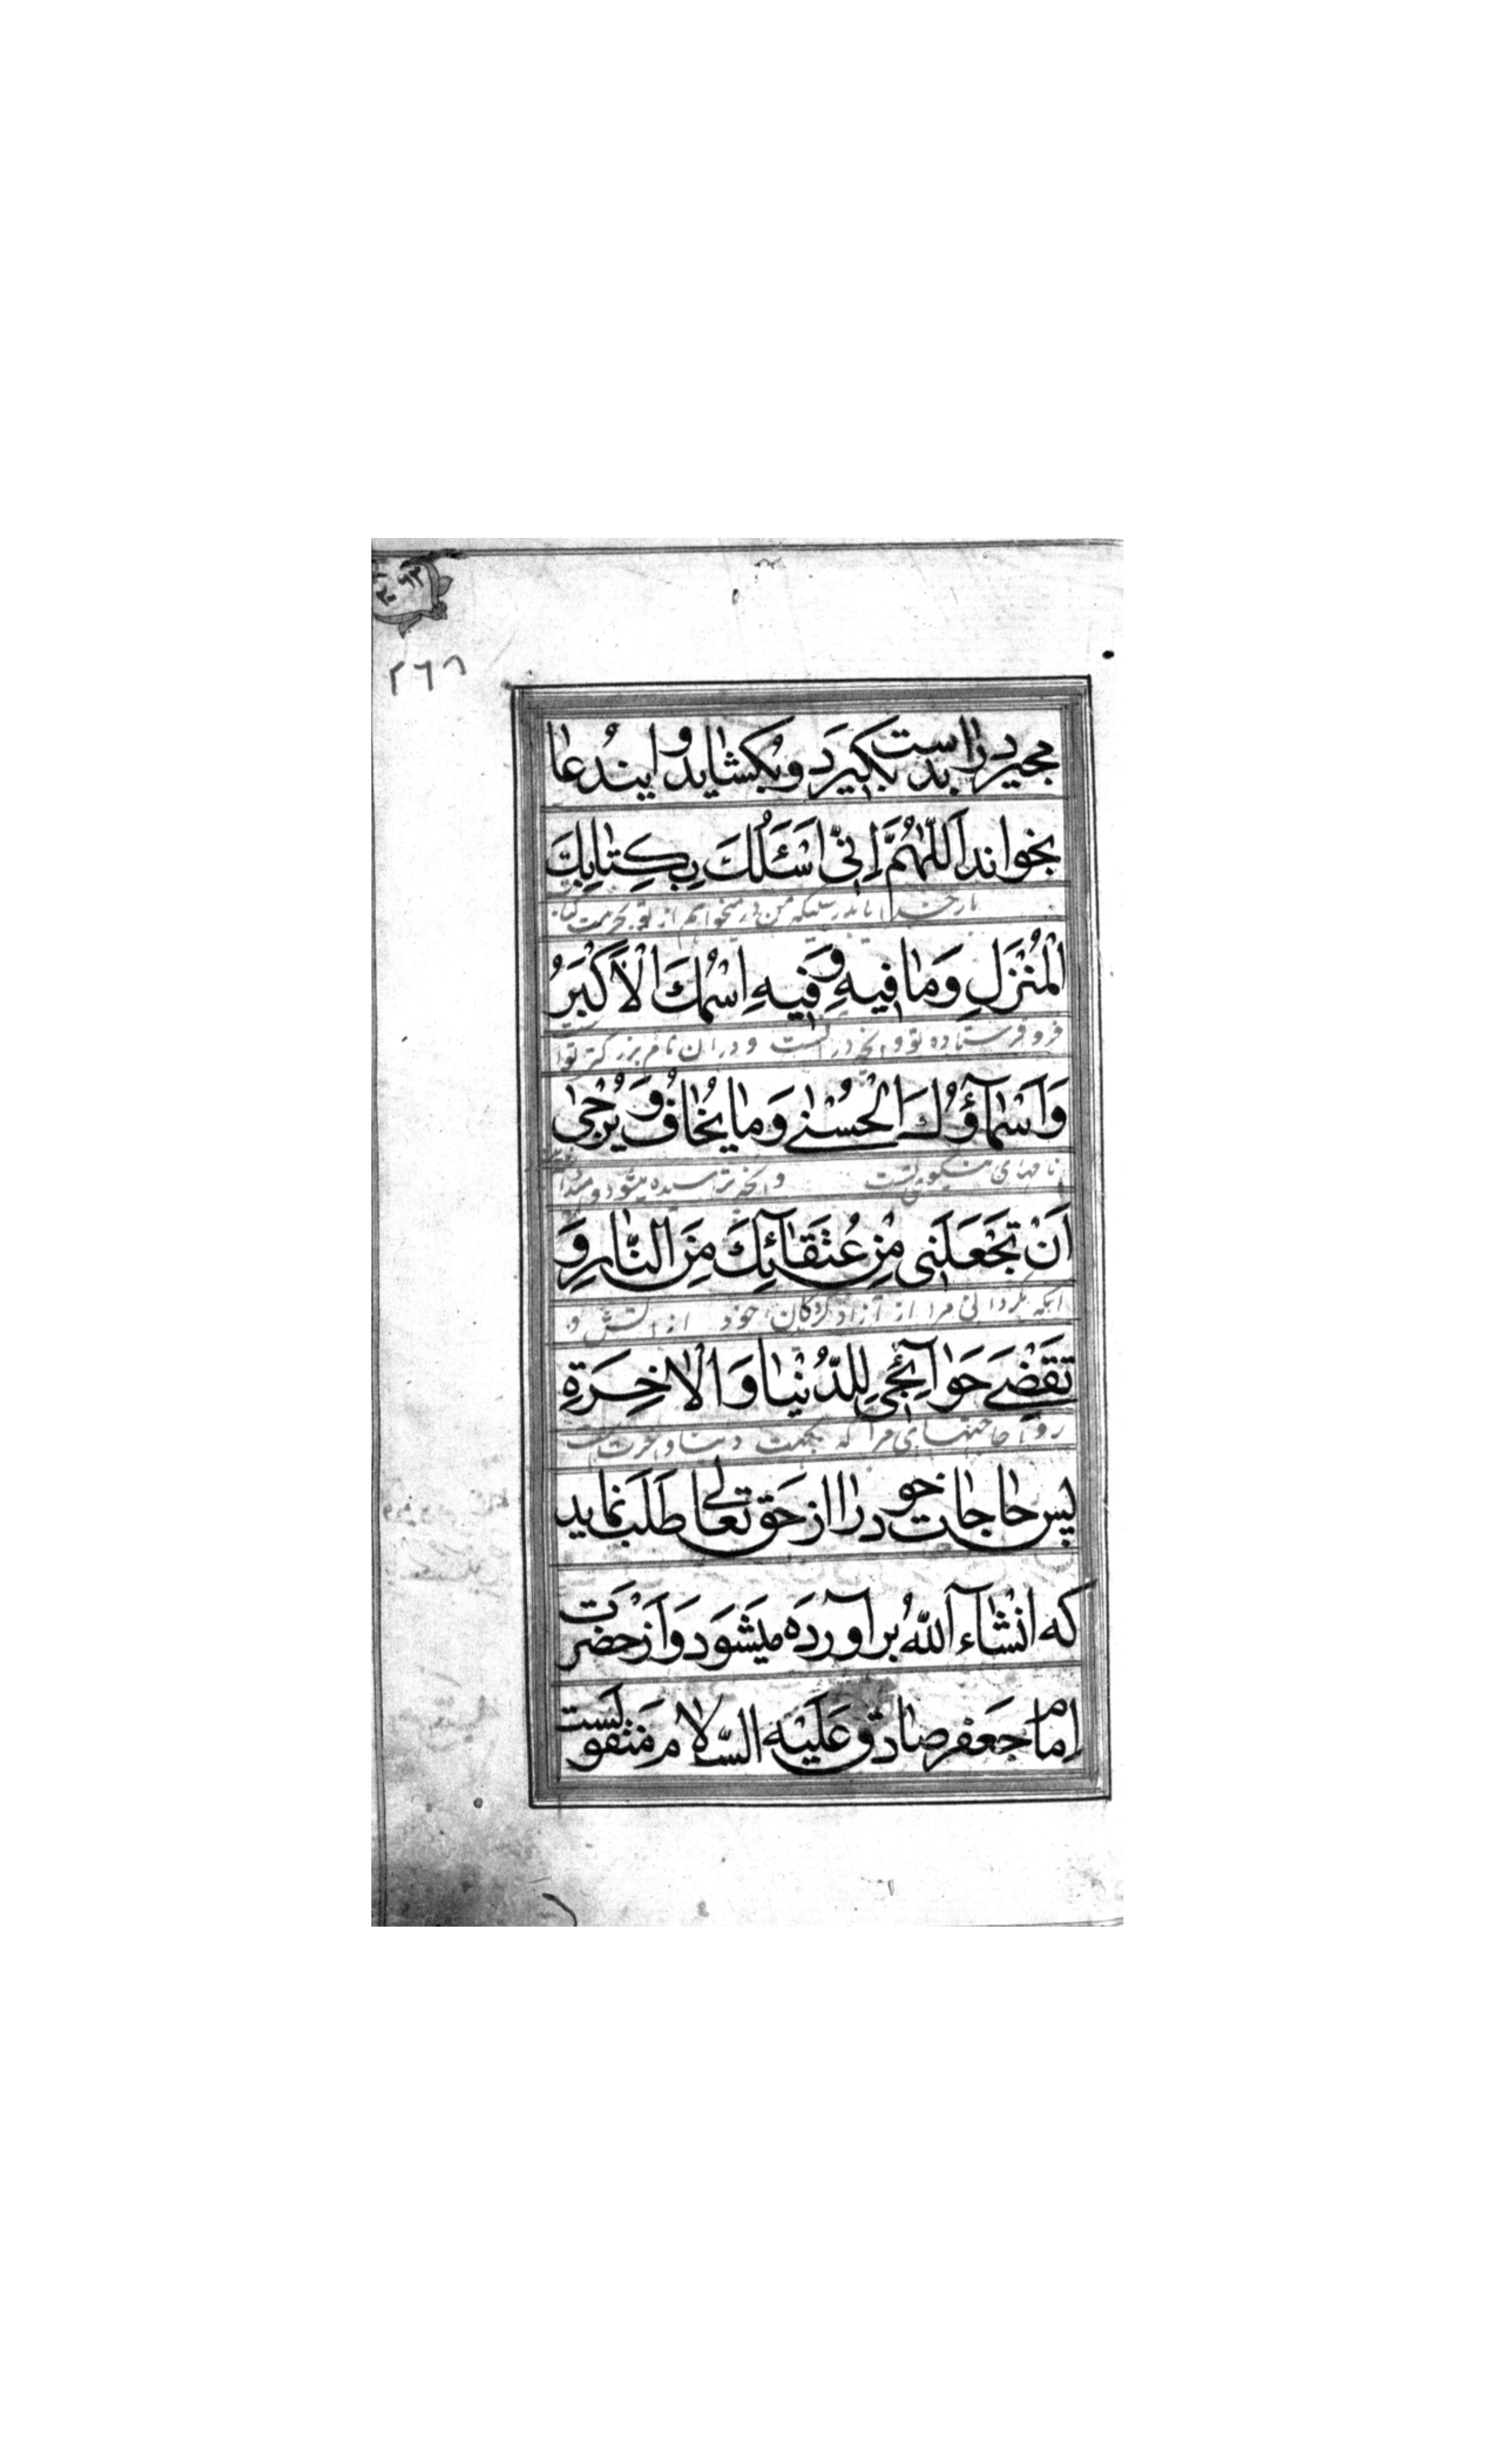 ٢٦٨
مجید را بدست بکیرد و بکشاید و ایندُعا
بخواند اَللّٰهُمَّ اِنّی اَسْئَلُكَ بِکِتٰابِكَ
بار خدایا بدرستیکه من میخواهم از تو بحرمت کتاب
الْمُنْزَلِ وَمٰا فیهِ وَفیهِ اِسْمُكَ الْاَکْبَرُ
فرو فرستاده تو و آنچه در آنست و در آن نام بزرکتر تو
وَاَسْمٰآؤُكَ الْحُسْنٰی وَمٰا یُخٰافُ وَیُرْجٰی
نامهای نیکوی تست و آنچه ترسیده میشود و
اَنْ تَجْعَلَنی مِنْ عُتَقٰآئِكَ مِنَ النّٰارِ وَ
اینکه بکردانی مرا از آزاد کردکان خود از آتش و
تَقْضِیَ حَوٰآئِجی لِلدُّنْیٰا وَالْاٰخِرَةِ
روا حاجتهای مرا که بجهت دنیا و آخرت است
پس حاجات خود را از حَق تَعالی طَلَب نماید
که انْشٰآءَ اللّهُ بر آورده میشَوَد وَ از حضرَت
اِمام جَعفر صادق عَلَیْه السَّلام مَنقولست